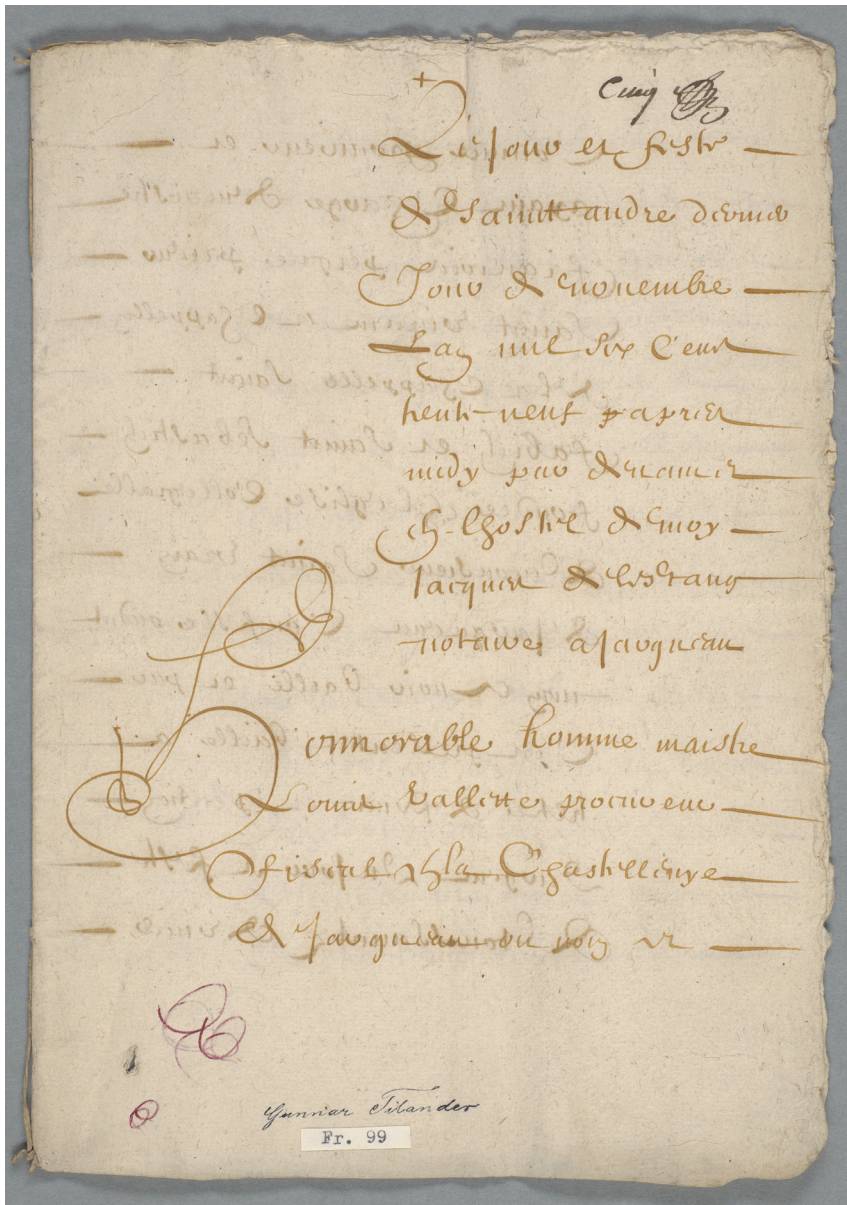 Cinq
Le jour et feste
de Sainct andre dernier
Jour de nouembre
Lan mil six Cens
trente neuf apres
midy par deuant
en lhostel de moy
Jacques de lestang
notaire a Jargneau
honnorable homme maistre
Louis Vallette procureur
fiscal en la Chastellenye
de Jargneau ou nom et
Gunnar Tilander
Fr. 99